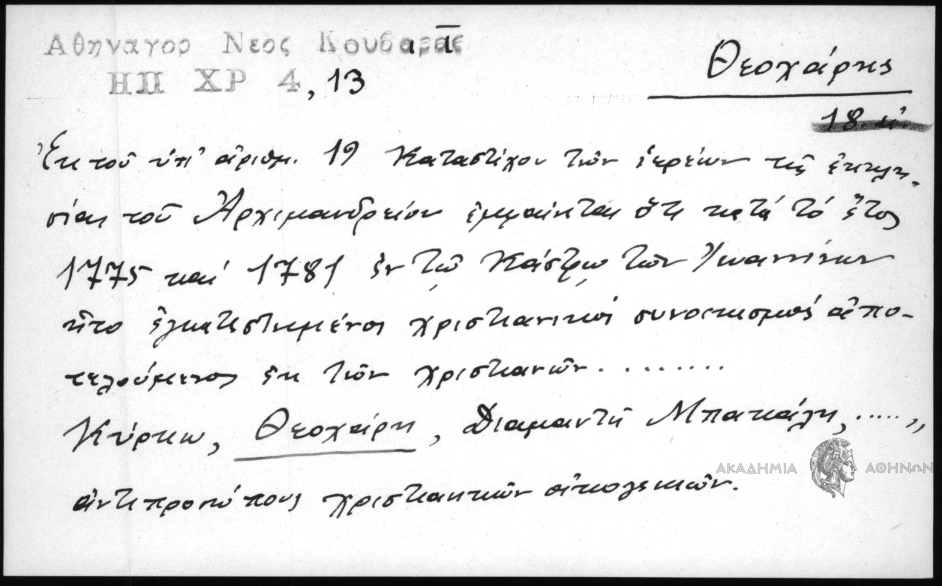 Αθηναγορ Νεος Κουβαρᾱς
ΗΠ ΧΡ 4, 13
Θεοχάρης
18.
Ἐκ τοῦ ὑπ' ἀριθμ. 19 Καταστίχου τῶν ἱερέων τῆς ἐκκλη-
σίας τοῦ Ἀρχιμανδρείου ἐμφαίνεται ὅτι κατά τό ἔτος
1775 καί 1781 ἐν τῷ Κάστρῳ τῶν Ἰωαννίνων
ἦτο ἐγκατεστημένος χριστιανικός συνοικισμός ἀπο-
τελούμενος ἐκ τῶν χριστιανῶν . . . . . . . .
Κύρκω, Θεοχάρη, Διαμαντῆ Μπακάλη, . . . . . ,,
ἀντιπροσώπους χριστιανικῶν οἰκογενειῶν.
ΑΚΑΔΗΜΙΑ ΑΘΗΝΩΝ